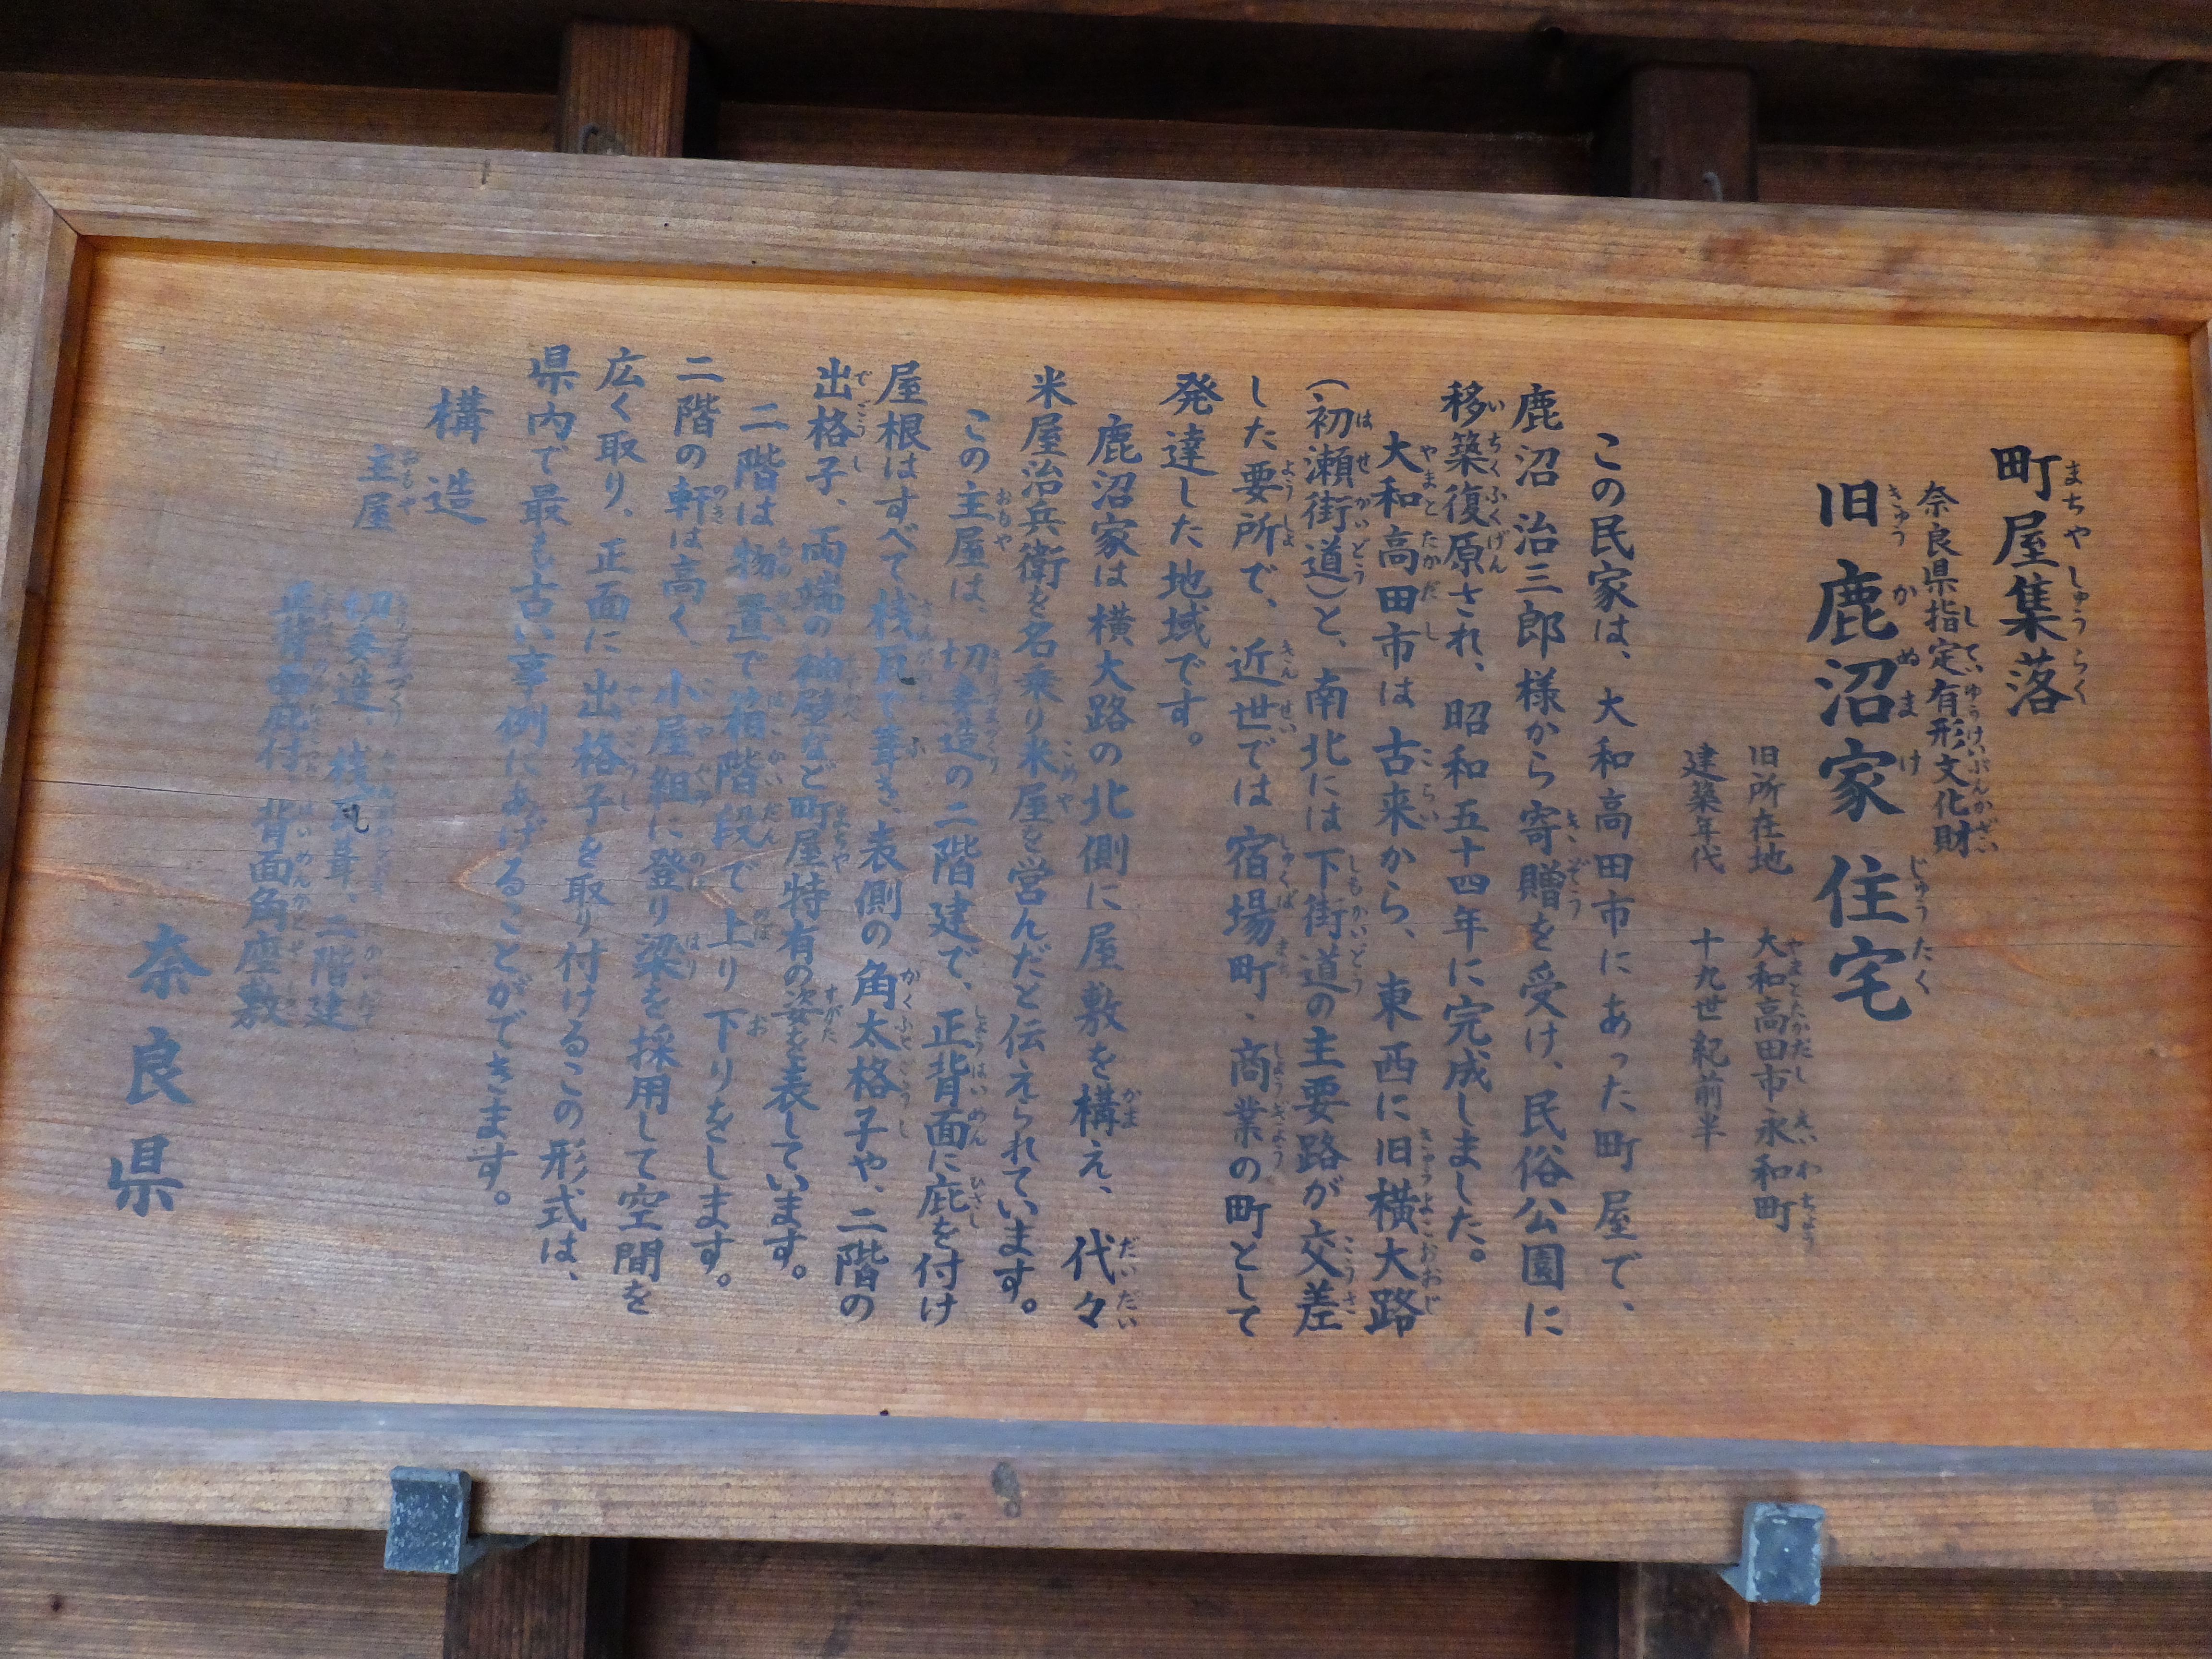 町屋集落
奈良県指定有形文化財
旧鹿沼家住宅
旧所在地 大和高田市永和町
建築年代 十九世紀前半
この民家は、大和高田市にあった町屋で、
鹿沼治三郎様から寄贈を受け、民俗公園に
移築復原され、昭和五十四年に完成しました。
大和高田市は古来から、東西に旧横大路
(初瀬街道)と、南北には下街道の主要路が交差
した要所で、近世では宿場町、商業の町として
発達した地域です。
鹿沼家は横大路の北側に屋敷を構え、代々
米屋治兵衛を名乗り米屋を営んだと伝えられています。
この主屋は、切妻造の二階建で、正背面に庇を付け
屋根はすべて桟瓦で葺き、表側の角太格子や、二階の
出格子、両端の袖壁など町屋特有の姿を表しています。
二階は物置で箱階段で上り下りをします。
二階の軒は高く、小屋組に登り梁を採用して空間を
広く取り、正面に出格子を取り付けるこの形式は、
県内で最も古い事例にあげることができます。
構造
主屋 切妻造、桟瓦葺、二階建
正背面庇付 背面角座敷
奈良県